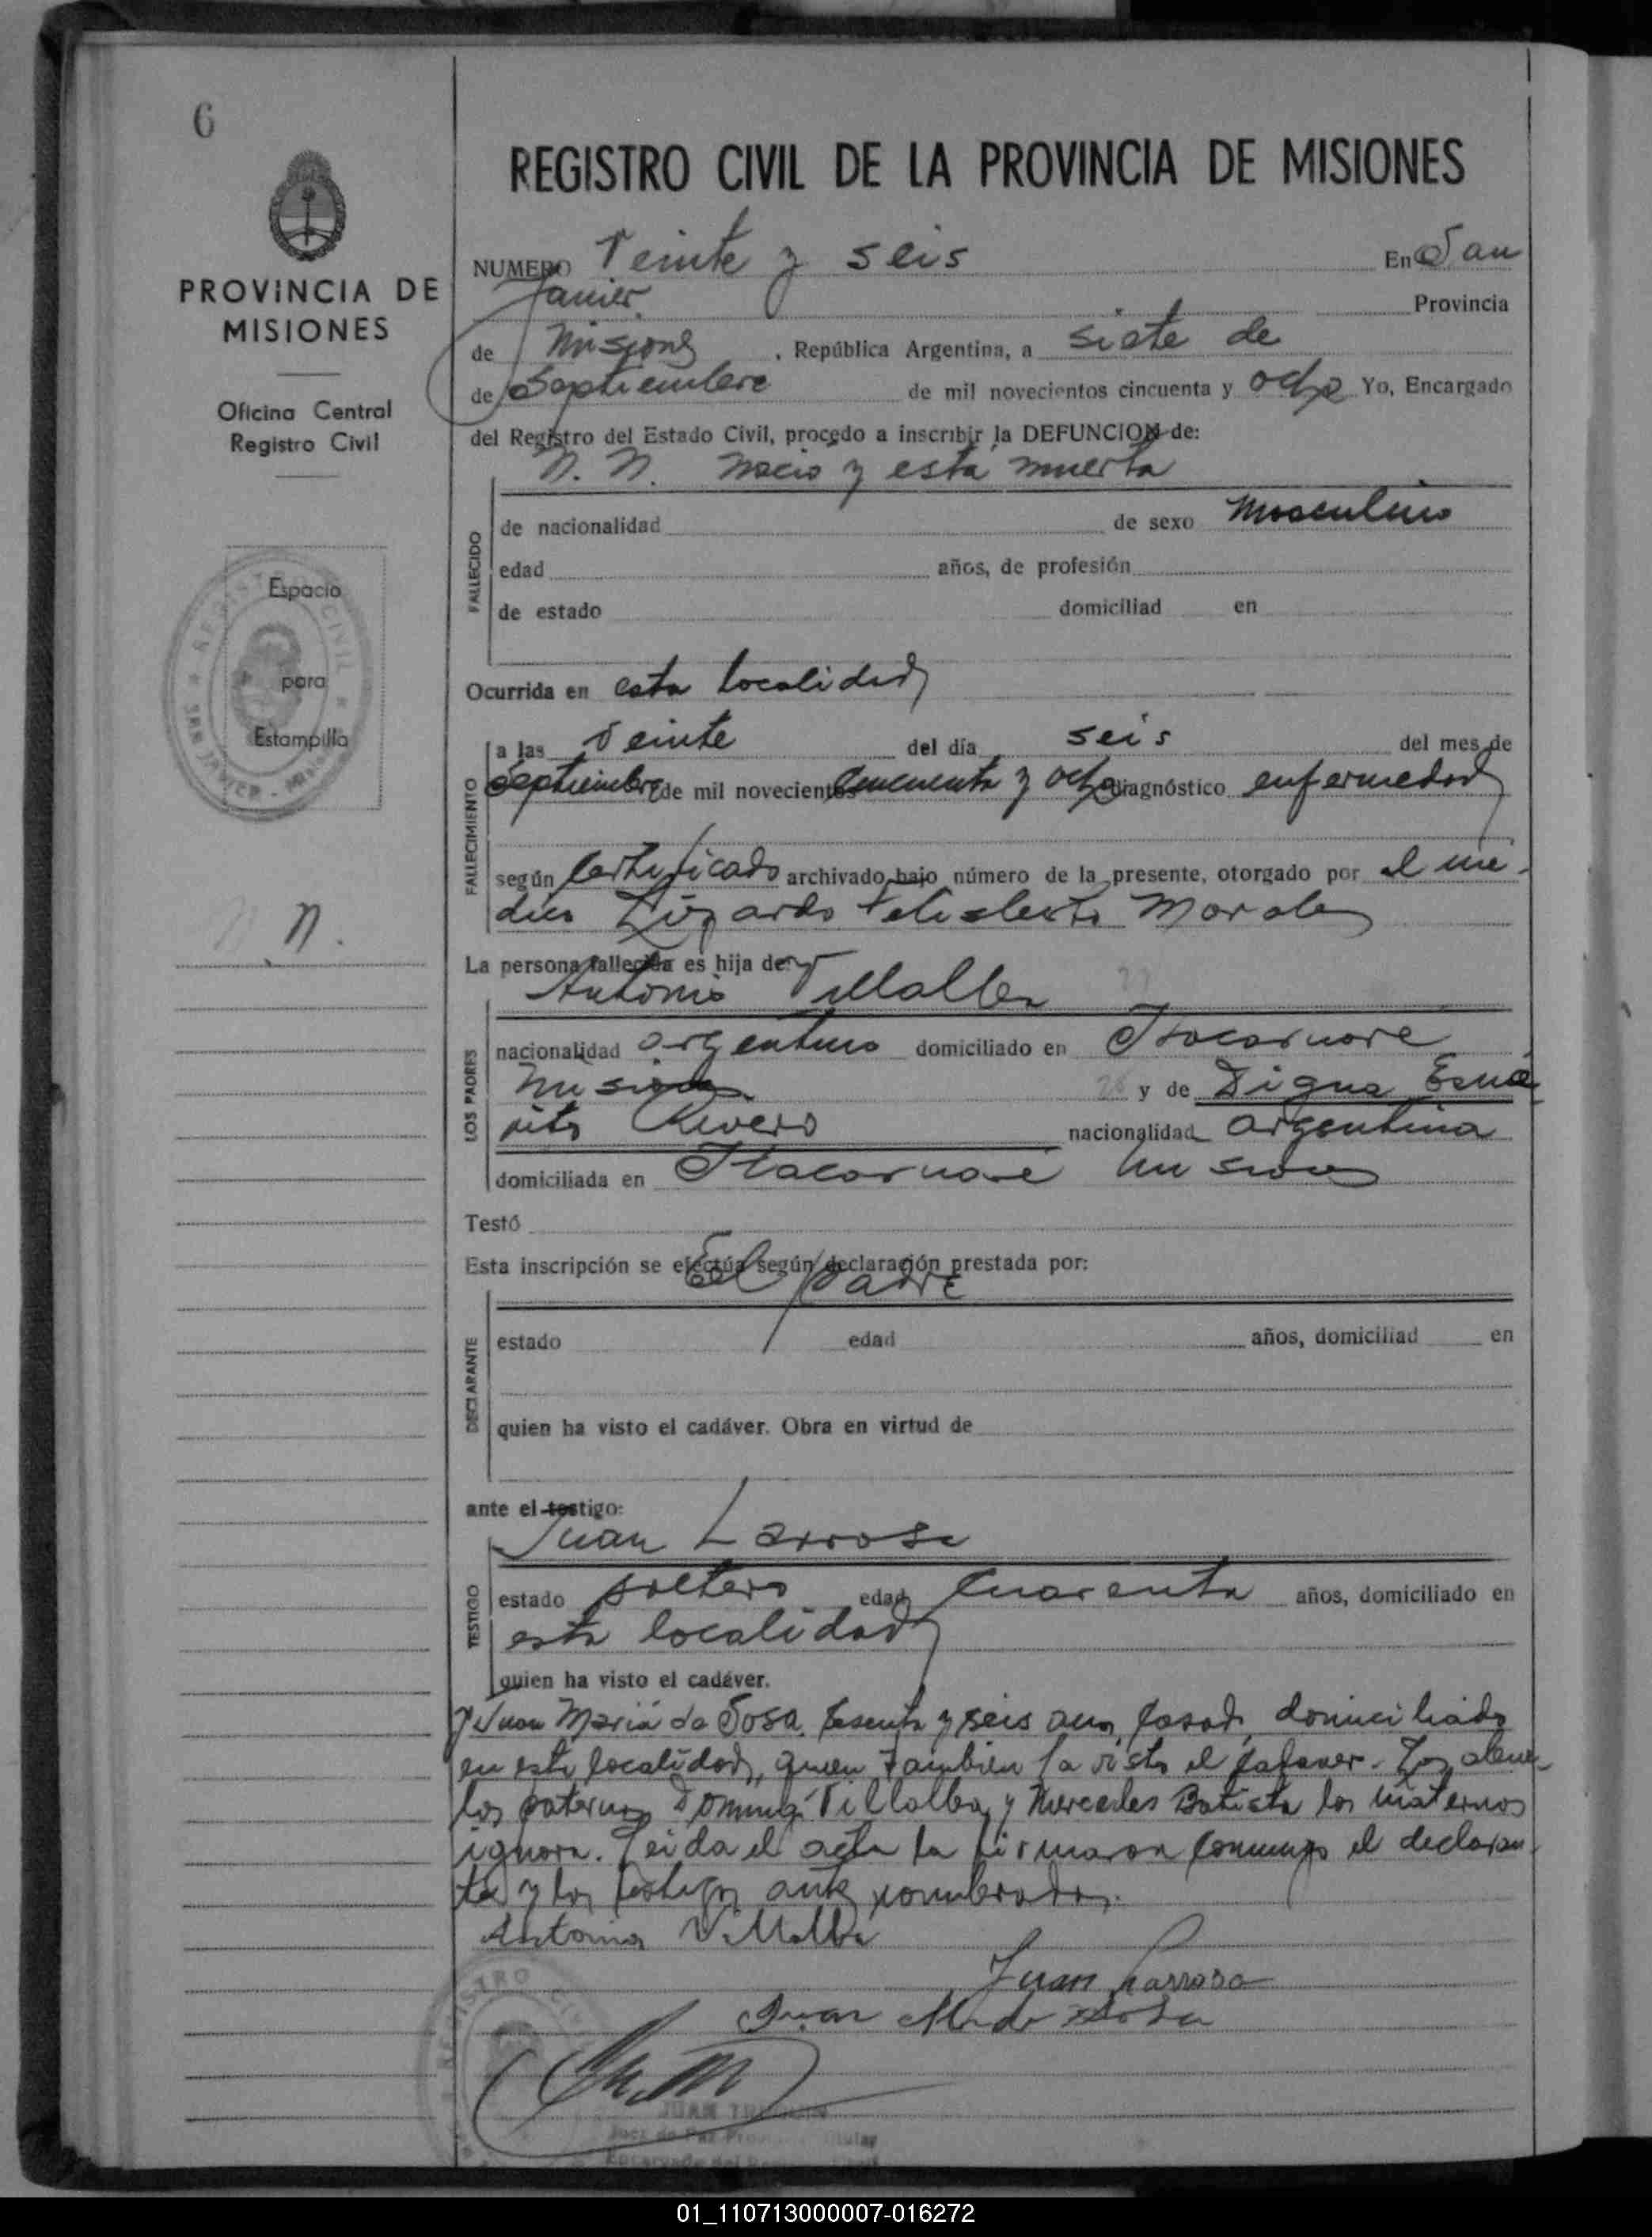 6
REGISTRO CIVIL DE LA PROVINCIA DE MISIONES
PROVINCIA DE
MISIONES
Oficina Central
Registro Civil
Espacio
para
Estampilla
REGISTRO CIVIL
SAN JAVIER - MISIONES
N.
NUMERO Veinte y seis En San
Javier Provincia
de Misiones, República Argentina, a siete de
de Septiembre de mil novecientos cincuenta y ocho Yo, Encargado
del Registro del Estado Civil, procedo a inscribir la DEFUNCION de:
N. N. nacio y esta muerta
FALLECIDO
de nacionalidad de sexo masculino
edad años, de profesión
de estado domiciliad en
Ocurrida en esta localidad
FALLECIMIENTO
a las veinte del día seis del mes de
Septiembre de mil novecientos cincuenta y ocho diagnóstico enfermedad
según certificado archivado bajo número de la presente, otorgado por el me-
dico Lizardo Morales
La persona fallecida es hija de:
Antonio Villalba
LOS PADRES
nacionalidad argentino domiciliado en Itacaruare
Misiones y de Digna
Rivero nacionalidad argentina
domiciliada en Itacaruare Misiones
Testó
Esta inscripción se efectúa según declaración prestada por:
El padre
DECLARANTE
estado edad años, domiciliad en
quien ha visto el cadáver. Obra en virtud de
ante el testigo:
Juan Larrosa
TESTIGO
estado soltero edad cuarenta años, domiciliado en
esta localidad
quien ha visto el cadáver.
y Juan Maria da Sosa, sesenta y seis años, casado, domiciliado
en esta localidad, quien tambien ha visto el cadaver. Los abue-
los paternos Domingo Villalba y Mercedes Batista los maternos
ignora. Leida el acta la firmaron conmigo el declaran-
te y los testigos antes nombrados.
Antonio Villalba
Juan Larrosa
Juan M. da Sosa
REGISTRO CIVIL
JUAN
Juez de Paz
Encargado del
01_110713000007-016272